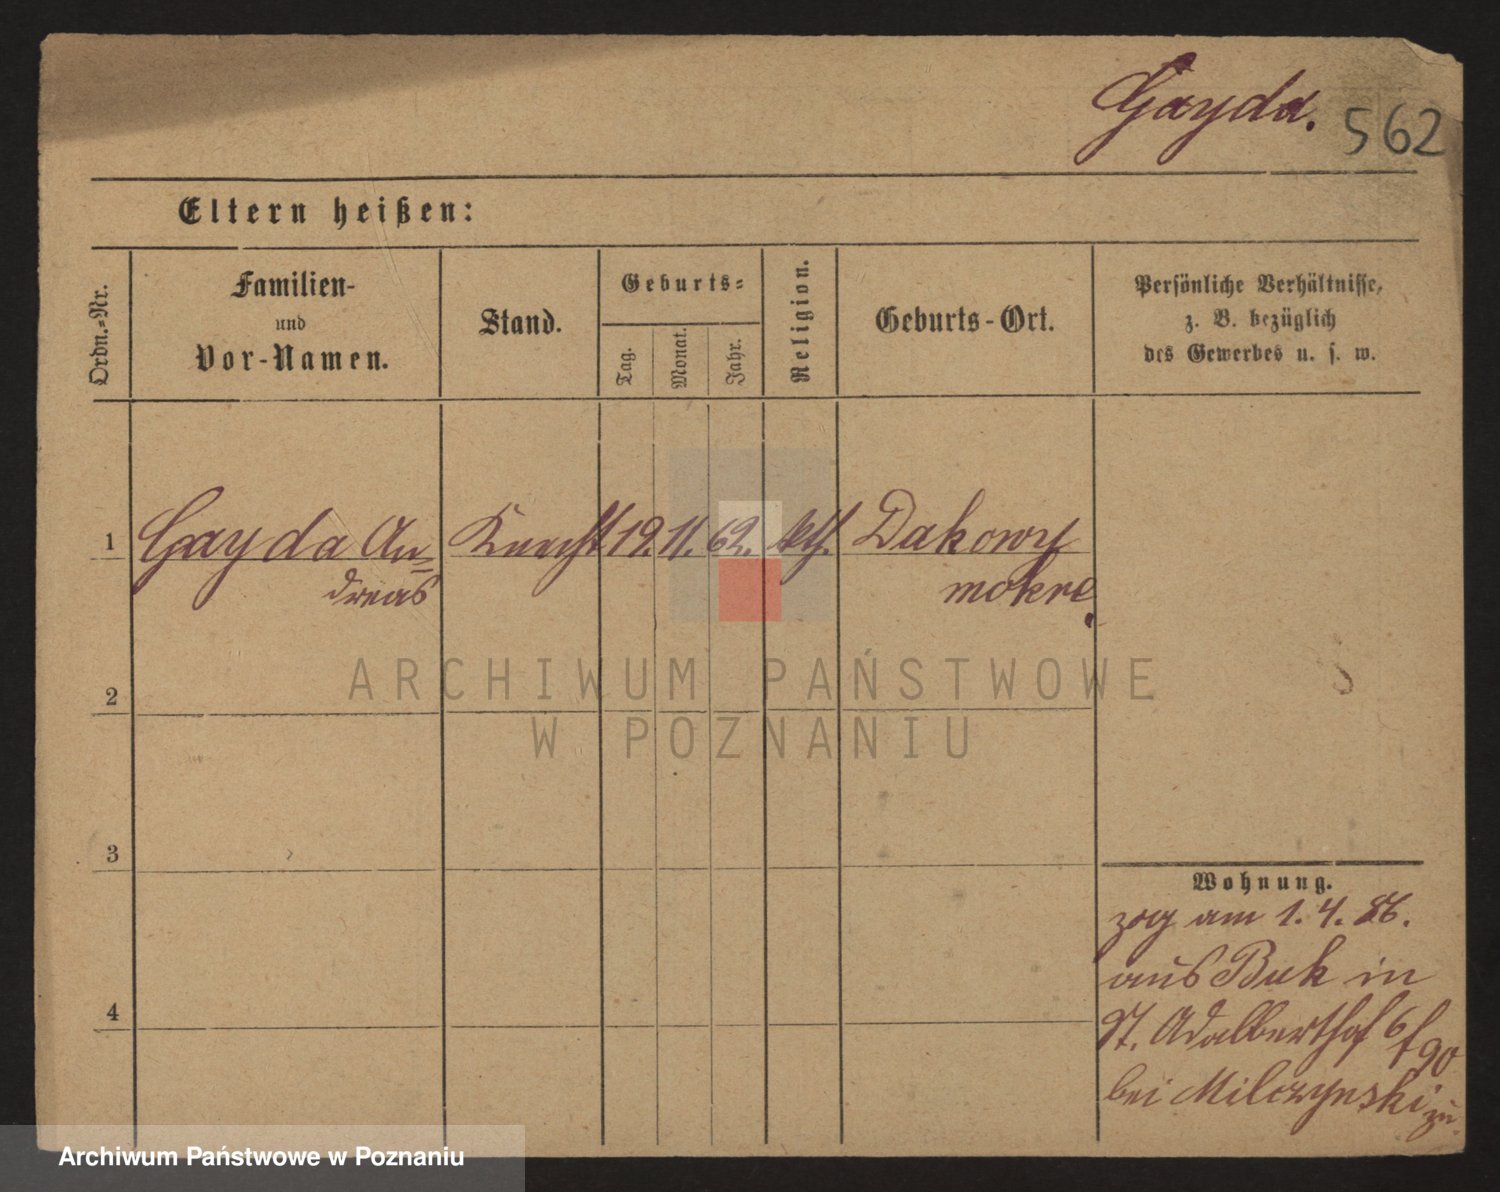 Gayda.
562
Eltern heißen:
Ordn.=Nr.
Familien-
und
Vor-Namen.
Stand.
Geburts=
Tag.
Monat.
Jahr.
Religion.
Geburts-Ort.
Persönliche Verhältnisse,
z. B. bezüglich
des Gewerbes u. s. w.
1 Gayda An= Knecht 19. 11. 62. kth. Dakowy
dreas mokre.
2
3
4
Wohnung.
zog am 1. 4. 86.
aus Buk in
St. Adalberthof 6/90
bei Milczynski zu.
ARCHIWUM PAŃSTWOWE
W POZNANIU
Archiwum Państwowe w Poznaniu